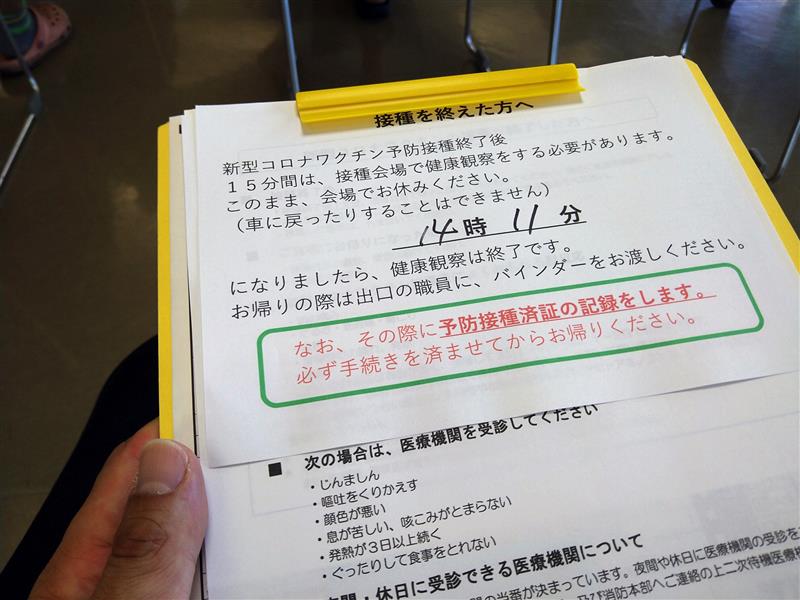 接種を終えた方へ
新型コロナワクチン予防接種終了後
１５分間は、接種会場で健康観察をする必要があります。
このまま、会場でお休みください。
（車に戻ったりすることはできません）
14時 11分
になりましたら、健康観察は終了です。
お帰りの際は出口の職員に、バインダーをお渡しください。
なお、その際に予防接種済証の記録をします。
必ず手続きを済ませてからお帰りください。
■ 次の場合は、医療機関を受診してください
・じんましん
・嘔吐をくりかえす
・顔色が悪い
・息が苦しい、咳こみがとまらない
・発熱が３日以上続く
・ぐったりして食事をとれない
夜間・休日に受診できる医療機関について
の当番が決まっています。夜間や休日に医療機関の受診を
及び消防本部へご連絡の上二次待機医療